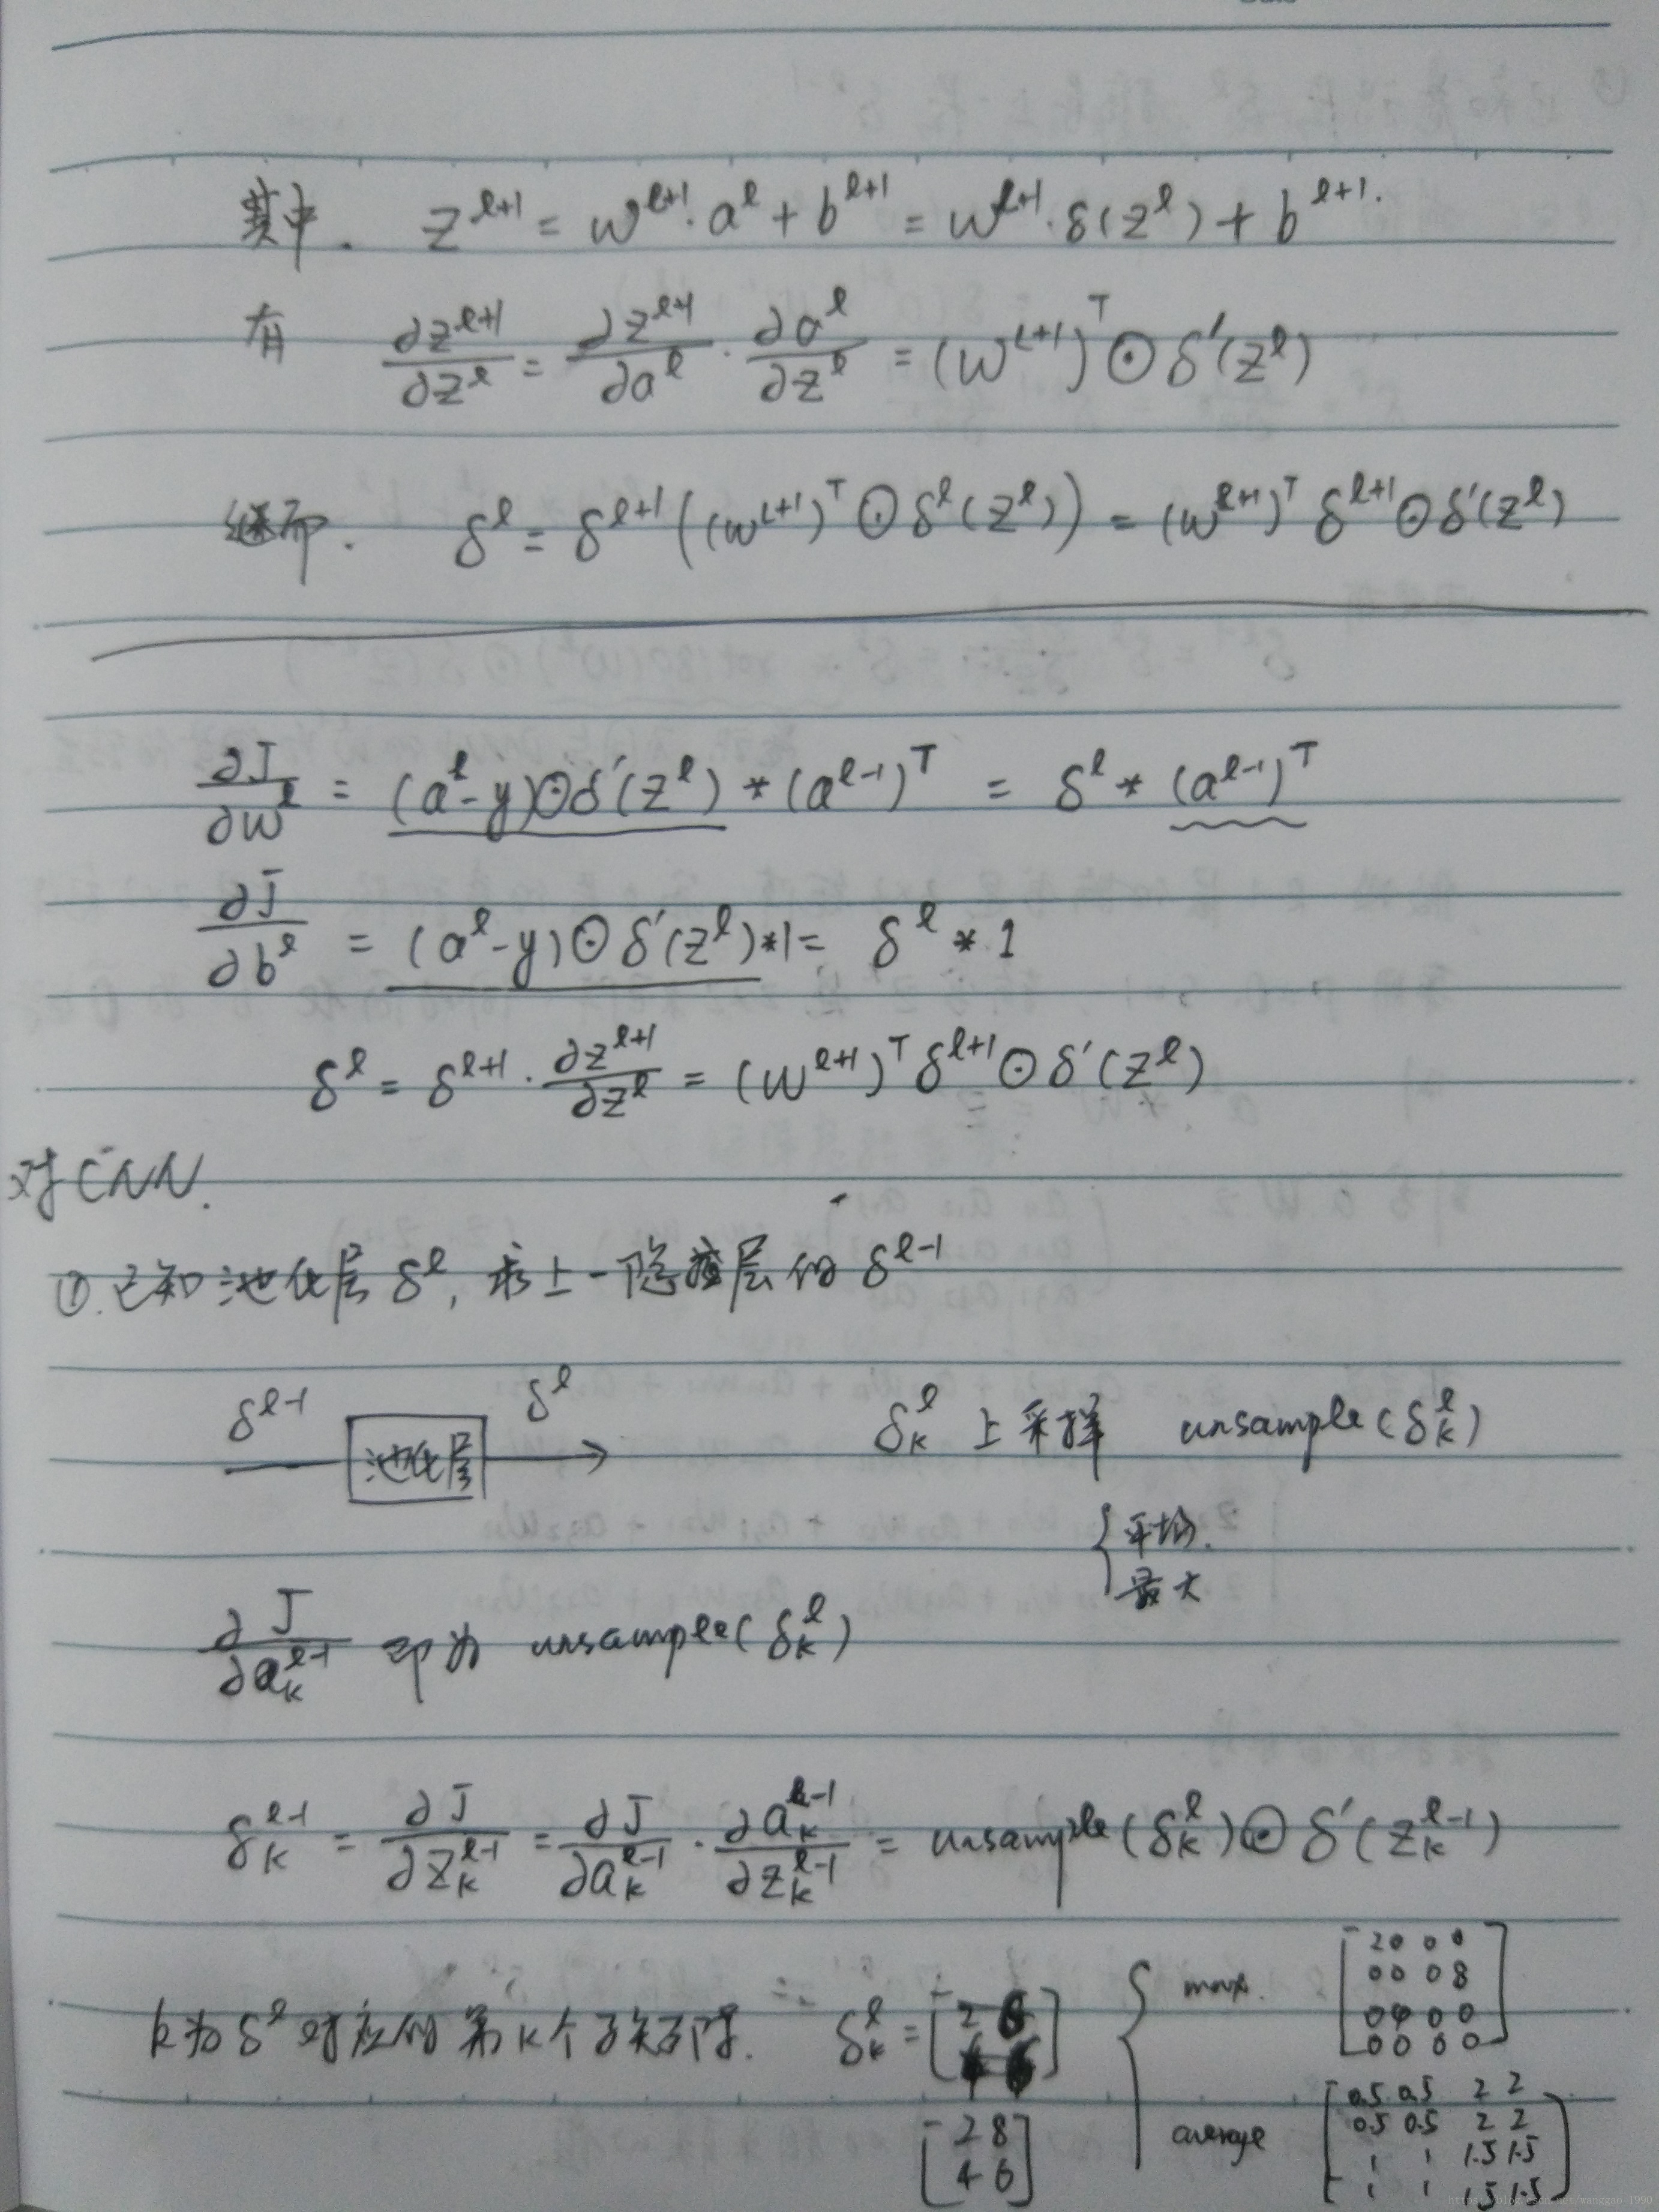 其中. z^{l+1} = w^{l+1}·a^l + b^{l+1} = w^{l+1}·δ(z^l) + b^{l+1}.
有 ∂z^{l+1}/∂z^l = ∂z^{l+1}/∂a^l · ∂a^l/∂z^l = (w^{l+1})^T ⊙ δ'(z^l)
继而. δ^l = δ^{l+1}((w^{l+1})^T ⊙ δ^l(z^l)) = (w^{l+1})^T δ^{l+1} ⊙ δ'(z^l)
∂J/∂w^l = (a^l-y)⊙δ'(z^l) * (a^{l-1})^T = δ^l * (a^{l-1})^T
∂J/∂b^l = (a^l-y)⊙δ'(z^l)*1 = δ^l * 1
δ^l = δ^{l+1} · ∂z^{l+1}/∂z^l = (w^{l+1})^T δ^{l+1} ⊙ δ'(z^l)
对CNN.
①.已知池化层δ^l, 求上一隐藏层的δ^{l-1}
δ^{l-1} 池化层 δ^l δ_k^l 上采样 unsample(δ_k^l)
{ 平均.
最大
∂J/∂a_k^{l-1} 即为 unsample(δ_k^l)
δ_k^{l-1} = ∂J/∂z_k^{l-1} = ∂J/∂a_k^{l-1} · ∂a_k^{l-1}/∂z_k^{l-1} = unsample(δ_k^l) ⊙ δ'(z_k^{l-1})
k为δ^l对应的第k个子矩阵. δ_k^l =
[2 8
4 6]
{ max.
[2 0 0 0
0 0 0 8
0 4 0 0
0 0 0 0]
average
[0.5 0.5 2 2
0.5 0.5 2 2
1 1 1.5 1.5
1 1 1.5 1.5]